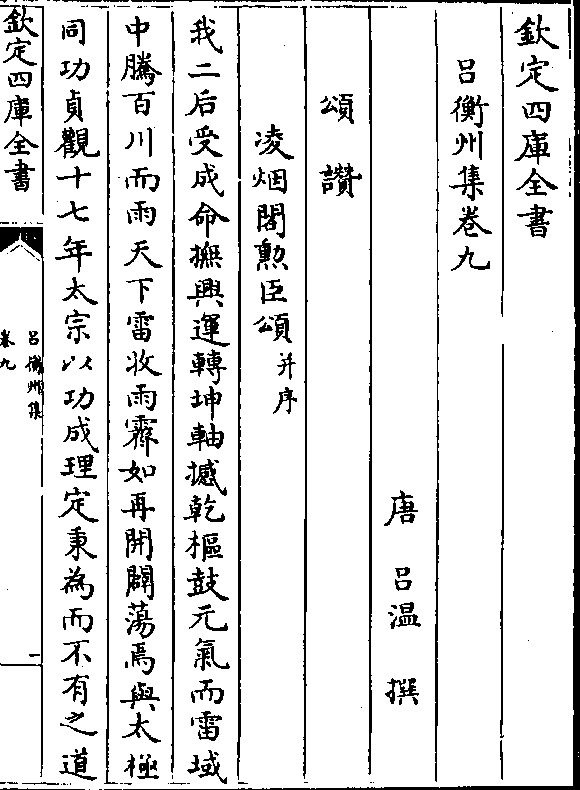 欽定四庫全書
吕衡州集卷九
唐 吕温 撰
頌讚
凌烟閣勲臣頌并序
我二后受成命撫興運轉坤軸撼乾樞鼓元氣而雷域
中騰百川而雨天下雷收雨霽如再開闢蕩焉與太極
同功貞觀十七年太宗以功成理定秉為而不有之道
欽定四庫全書
吕衡州集
卷九
一